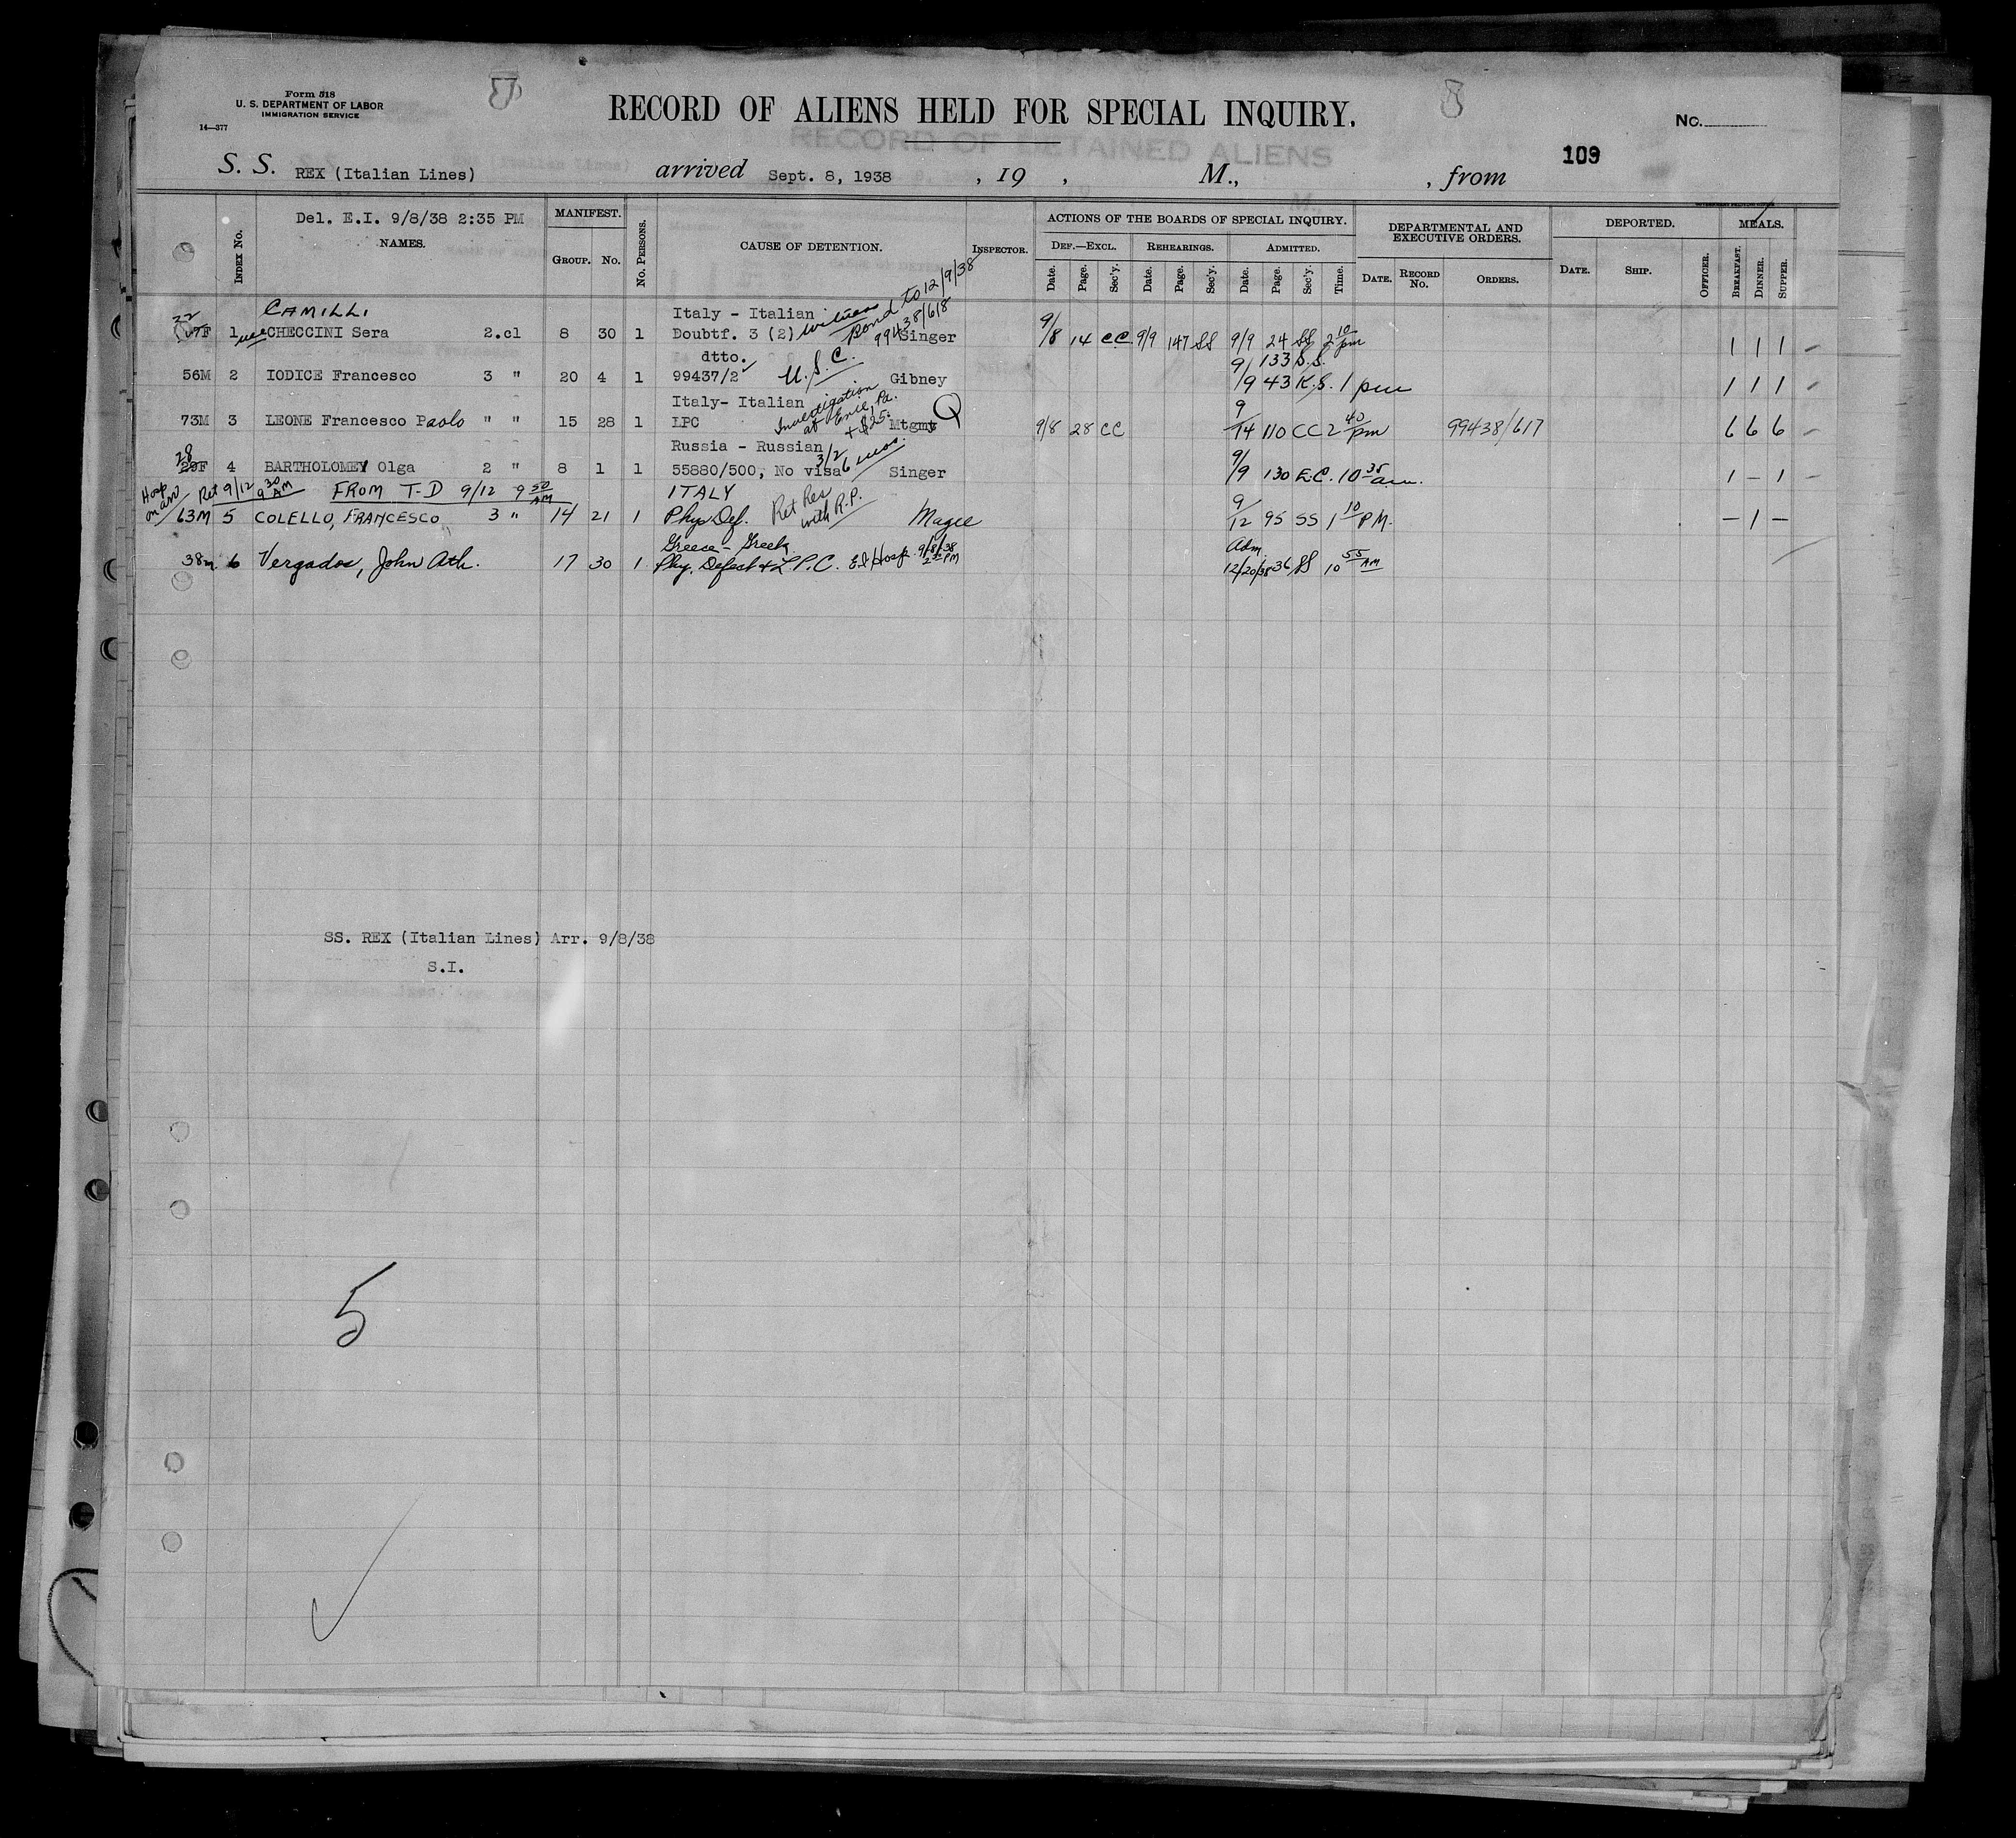 Form 518
U. S. DEPARTMENT OF LABOR
IMMIGRATION SERVICE
14—377
RECORD OF ALIENS HELD FOR SPECIAL INQUIRY.
RECORD OF DETAINED ALIENS
No.
109
S. S. REX (Italian Lines) arrived Sept. 8, 1938, 19 , M., , from
Del. E.I. 9/8/38 2:35 PM
INDEX No. NAMES. MANIFEST. GROUP. No. No. PERSONS. CAUSE OF DETENTION. INSPECTOR. ACTIONS OF THE BOARDS OF SPECIAL INQUIRY. DEF.—EXCL. Date. Page. Sec'y. REHEARINGS. Date. Page. Sec'y. ADMITTED. Date. Page. Sec'y. Time. DEPARTMENTAL AND EXECUTIVE ORDERS. DATE. RECORD No. ORDERS. DEPORTED. DATE. SHIP. OFFICER. MEALS. BREAKFAST. DINNER. SUPPER.
CAMILLI Italy - Italian witness Bond to 12/9/38
22 F 1 CHECCINI Sera 2.cl 8 30 1 Doubtf. 3 (2) 99438/618 Singer 9/8 14 CC 9/9 147 SS 9/9 24 SS 2 10 pm 1 1 1
dtto. 133 S.S.
56M 2 IODICE Francesco 3 " 20 4 1 99437/2 U.S.C. Gibney 9/9 43 K.S. 1 pm 1 1 1
Italy- Italian Investigation at Erie, Pa. + $25.
73M 3 LEONE Francesco Paolo " " 15 28 1 LPC Mtgmt Q 9/8 28 CC 9/14 110 CC 2 40 pm 99438/617 6 6 6
Russia - Russian 3/2 6 mos.
28 29F 4 BARTHOLOMEY Olga 2 " 8 1 1 55880/500, No visa Singer 9/9 130 E.C. 10 35 am. 1 – 1
Hosp on arr Ret 9/12 9 30 AM FROM T-D 9/12 9 50 AM ITALY
63M 5 COLELLO, FRANCESCO 3 " 14 21 1 Phys Def. Ret Res with R.P. Magee 9/12 95 SS 1 10 P.M. – 1 –
Greece - Greek
38m 6 Vergados, John Ath. 17 30 1 Phy. Defect & L.P.C. E I Hosp. 9/8/38 2 35 PM Adm. 12/20/38 36 SS 10 55 AM
SS. REX (Italian Lines) Arr. 9/8/38
S.I.
5